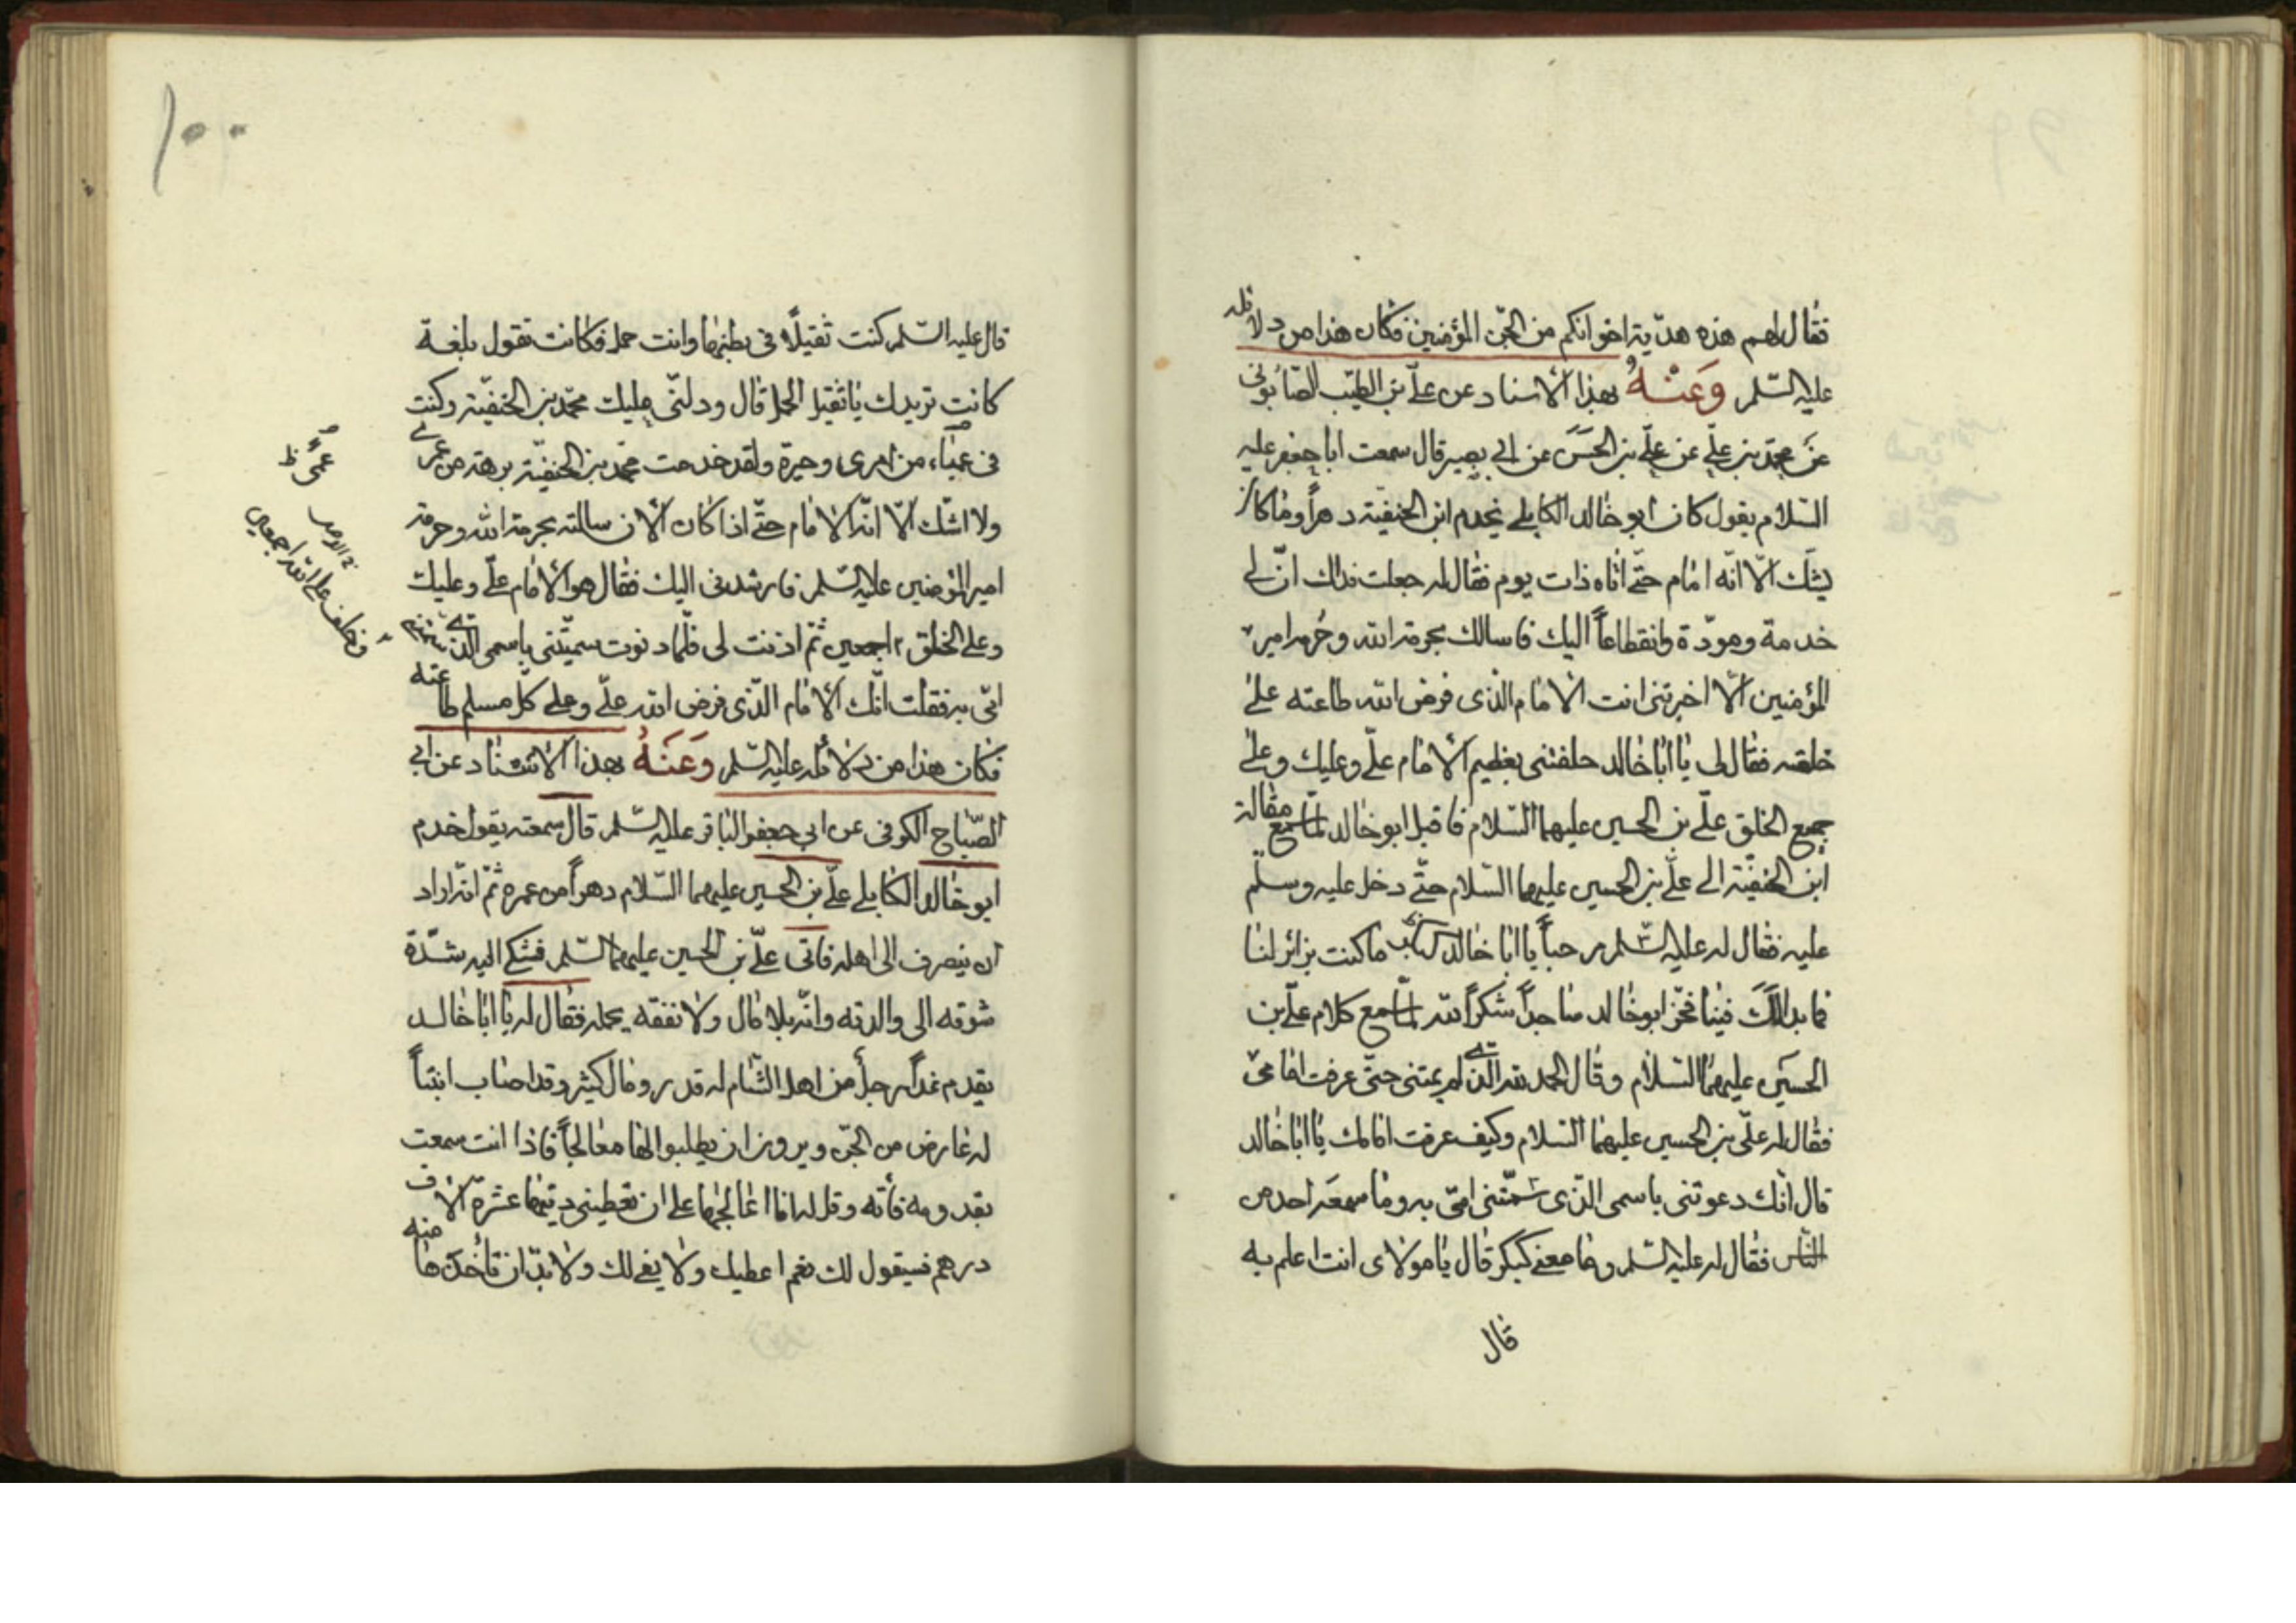 فقال لهم هذه هديّة اخوانكم من الجنّ المؤمنين فكان هذا من دلائله
عليه السّلم وَعَنْهُ بهذا الاسناد عن علىّ بن الطيّب الصّابونى
عن محمّد بن علىّ عن علىّ بن الحسَن عن ابى بصير قال سمعت ابا جعفر عليه
السّلام يقول كان ابو خالد الكابلى يخدم ابن الحنفيّة دهراً وما كان
يشكّ الّا انّه امام حتّى اتاه ذات يوم فقال له جعلت فداك انّ لى
خدمة ومودّة وانقطاعاً اليك فاسالك بحرمة الله وحرمة امير
المؤمنين الّا اخبرتنى انت الامام الّذى فرض الله طاعته على
خلقه فقال لى يا ابا خالد حلفتنى بعظيم الامام علىّ وعليك وعلى
جميع الخلق علىّ بن الحسين عليهما السّلام فاقبل ابو خالد لمّا سمع مقالة
ابن الحنفيّة الى علىّ بن الحسين عليهما السّلام حتّى دخل عليه وسلّم
عليه فقال له عليه السّلم مرحباً يا ابا خالد كنكر ما كنت بزائر لنا
فما بدا لك فينا فخرّ ابو خالد ساجداً شكراً لله لمّا سمع كلام علىّ بن
الحسين عليهما السّلام وقال الحمد لله الّذى لم يمتنى حتّى عرفت امامى
فقال له علىّ بن الحسين عليهما السّلام وكيف عرفت امامك يا ابا خالد
قال انّك دعوتنى باسمى الّذى سمّتنى امّى به وما سمعه احد من
النّاس فقال له عليه السّلم وما معنى كنكر قال يا مولاى انت اعلم به
قال
١٠٠
قال عليه السّلم كنت ثقيلاً فى بطنها وانت حمل فكانت تقول بلغة
كانت تريدك يا ثقيل الحمل قال ودلنّى عليك محمّد بن الحنفيّة وكنت
فى عمياء من امرى وحيرة ولقد خدمت محمّد بن الحنفيّة برهة من عمرى
ولا اشكّ الّا انّه الامام حتّى اذا كان الان سالته بحرمة الله وحرمة
امير المؤمنين عليه السّلم فارشدنى اليك فقال هو الامام علىّ وعليك
وعلى الخلق اجمعين ثمّ اذنت لى فلمّا دنوت سمّيتنى باسمى الّذى سمّتنى
امّى به فقلت انّك الامام الّذى فرض الله علىّ وعلى كلّ مسلم طاعته
فكان هذا من دلائله عليه السّلم وَعَنهُ بهذا الاسناد عن ابى
الصّباح الكوفى عن ابى جعفر الباقر عليه السّلم قال سمعته يقول خدم
ابو خالد الكابلى علىّ بن الحسين عليهما السّلام دهراً من عمره ثمّ انّه اراد
ان ينصرف الى اهله فاتى علىّ بن الحسين عليهما السّلم فشكى اليه شدّة
شوقه الى والدته وانّه بلا مال ولا نفقه يحمله فقال له يا ابا خالد
يقدم غداً رجل من اهل الشّام له قدر ومال كثير وقد اصاب ابنتاً
له عارض من الجنّ ويريدون ان يطلبوا لها معالجاً فاذا انت سمعت
بقدومه فأته وقل له انا اعالجها على ان تعطينى ديتها عشرة الاف
درهم فسيقول لك نعم اعطيك ولا يفى لك ولا بدّ ان تأخذها منه
عمىً ظ